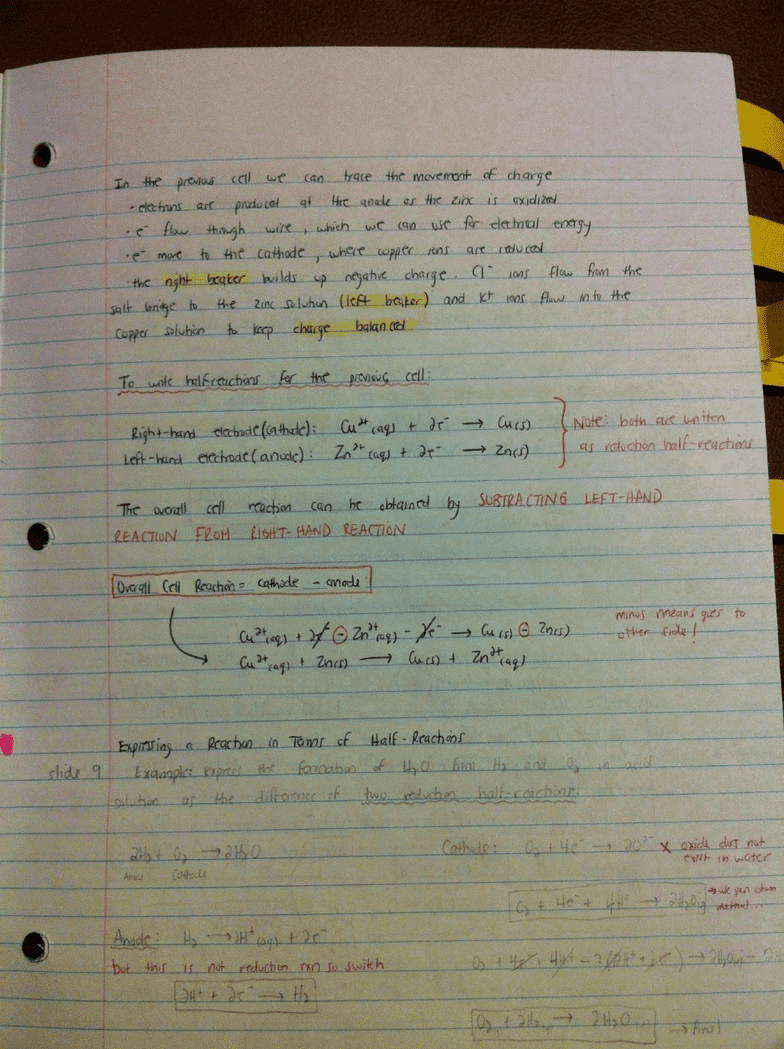 In the previous cell we can trace the movement of charge
• electrons are produced at the anode as the zinc is oxidized
• e⁻ flow through wire, which we can use for electrical energy
• e⁻ move to the cathode, where copper ions are reduced
• the right beaker builds up negative charge. Cl⁻ ions flow from the
salt bridge to the zinc solution (left beaker) and K+ ions flow into the
copper solution to keep charge balanced
To write half reactions for the previous cell:
Right-hand electrode (cathode): Cu²⁺(aq) + 2e⁻ → Cu(s)
Left-hand electrode (anode): Zn²⁺(aq) + 2e⁻ → Zn(s)
Note: both are written
as reduction half-reactions
The overall cell reaction can be obtained by SUBTRACTING LEFT-HAND
REACTION FROM RIGHT-HAND REACTION
Overall Cell Reaction = cathode - anode
Cu²⁺(aq) + 2e⁻ - Zn²⁺(aq) - 2e⁻ → Cu(s) - Zn(s)
minus means goes to
other side!
Cu²⁺(aq) + Zn(s) → Cu(s) + Zn²⁺(aq)
Expressing a Reaction in Terms of Half-Reactions
slide 9 Example: Express the formation of H₂O from H₂ and O₂ in acid
solution as the difference of two reduction half-reactions.
2H₂ + O₂ → 2H₂O
Anode Cathode
Cathode: O₂ + 4e⁻ → 2O²⁻ x oxide does not
exist in water
O₂ + 4e⁻ + 4H⁺ → 2H₂O
method...
Anode: H₂ → 2H⁺(aq) + 2e⁻
but this is not reduction rxn so switch
2H⁺ + 2e⁻ → H₂
O₂ + 4e⁻ + 4H⁺ - 2(2H⁺ + 2e⁻) → 2H₂O
O₂ + 2H₂ → 2H₂O → final